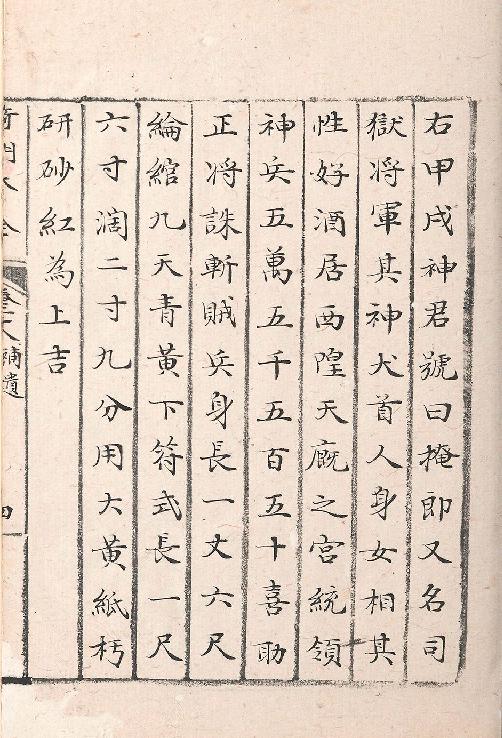 右甲戌神君號曰掩即又名司
獄将軍其神犬首人身女相其
性好酒居西隍天廐之宮統領
神兵五萬五千五百五十喜助
正将誅斬賊兵身長一丈六尺
綸綰九天青黃下符式長一尺
六寸濶二寸九分用大黃紙朽
研砂紅為上吉
補遺
四